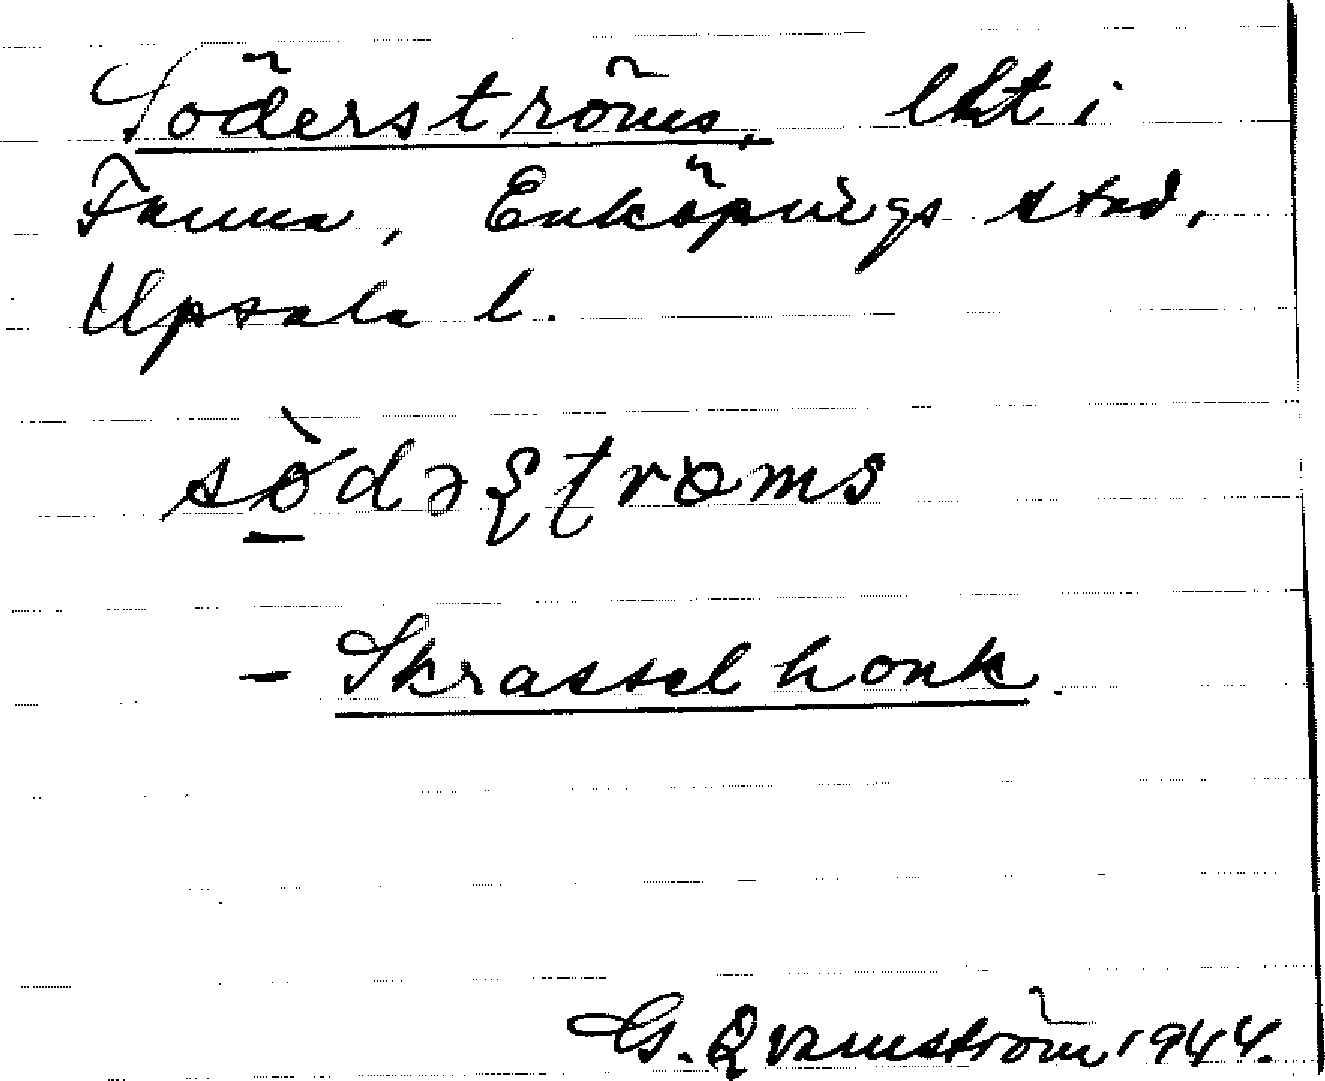 Söderströms, lht i
Fanna, Enköpings stad,
Upsala l.
sö̀dəʂʈroms
- Skrasselhonk.
G. Qvarnström 1944.